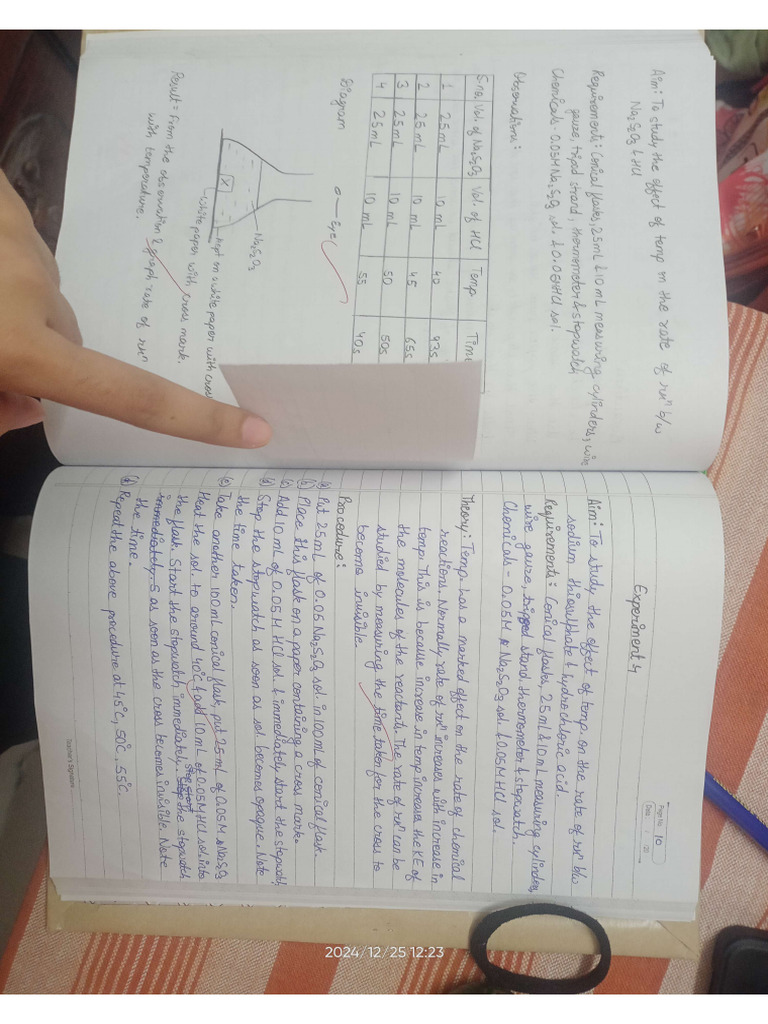 Aim: To study the effect of temp on the rate of rxⁿ b/w
Na₂S₂O₃ & HCl
Requirements: Conical flasks, 25mL & 10 mL measuring cylinders, wire
gauze, tripod strand, thermometer & stopwatch
Chemicals - 0.05M Na₂S₂O₃ sol. & 0.05M HCl sol.
Observations:
S.no. Vol. of Na₂S₂O₃ Vol. of HCl Temp Time
1 25mL 10 mL 40 93s
2 25mL 10 mL 45 65s
3 25mL 10 mL 50 50s
4 25mL 10 mL 55 40s
Diagram
Eye
Na₂S₂O₃
X
kept on a white paper with cross
White paper with cross mark.
Result = From the observation & graph rate of rxⁿ
with temperature.
Page No. 10
Date
Experiment 4
Aim: To study the effect of temp. on the rate of rxⁿ b/w
sodium thiosulphate & hydrochloric acid.
Requirements: Conical flasks, 25ml & 10mL measuring cylinders,
wire gauze, tripped stand, thermometer & stopwatch.
Chemicals - 0.05M Na₂S₂O₃ sol. & 0.05M HCl sol.
Theory: Temp has a marked effect on the rate of chemical
reactions. Normally, rate of rxⁿ increases with increase in
temp. This is because increase in temp increases the KE of
the molecules of the reactant. The rate of rxⁿ can be
studied by measuring the time taken for the cross to
become invisible
Procedure:
(a) Put 25mL of 0.05 Na₂S₂O₃ sol. in 100ml of conical flask.
(b) Place this flask on a paper containing a cross mark.
(c) Add 10ml of 0.05M HCl sol. & immediately start the stopwatch
(d) Stop the stopwatch as soon as sol. becomes opaque. Note
the time taken.
(e) Take another 100ml conical flask, put 25ml of 0.05M Na₂S₂O₃
Heat the sol. to around 40°C & add 10ml of 0.05M HCl sol. into
the flask. Start the stopwatch immediately. Stop the stopwatch
immediately. S as soon as the cross becomes invisible. Note
the time.
(f) Repeat the above procedure at 45°C, 50°C, 55°C.
Teacher's Signature
2024/12/25 12:23